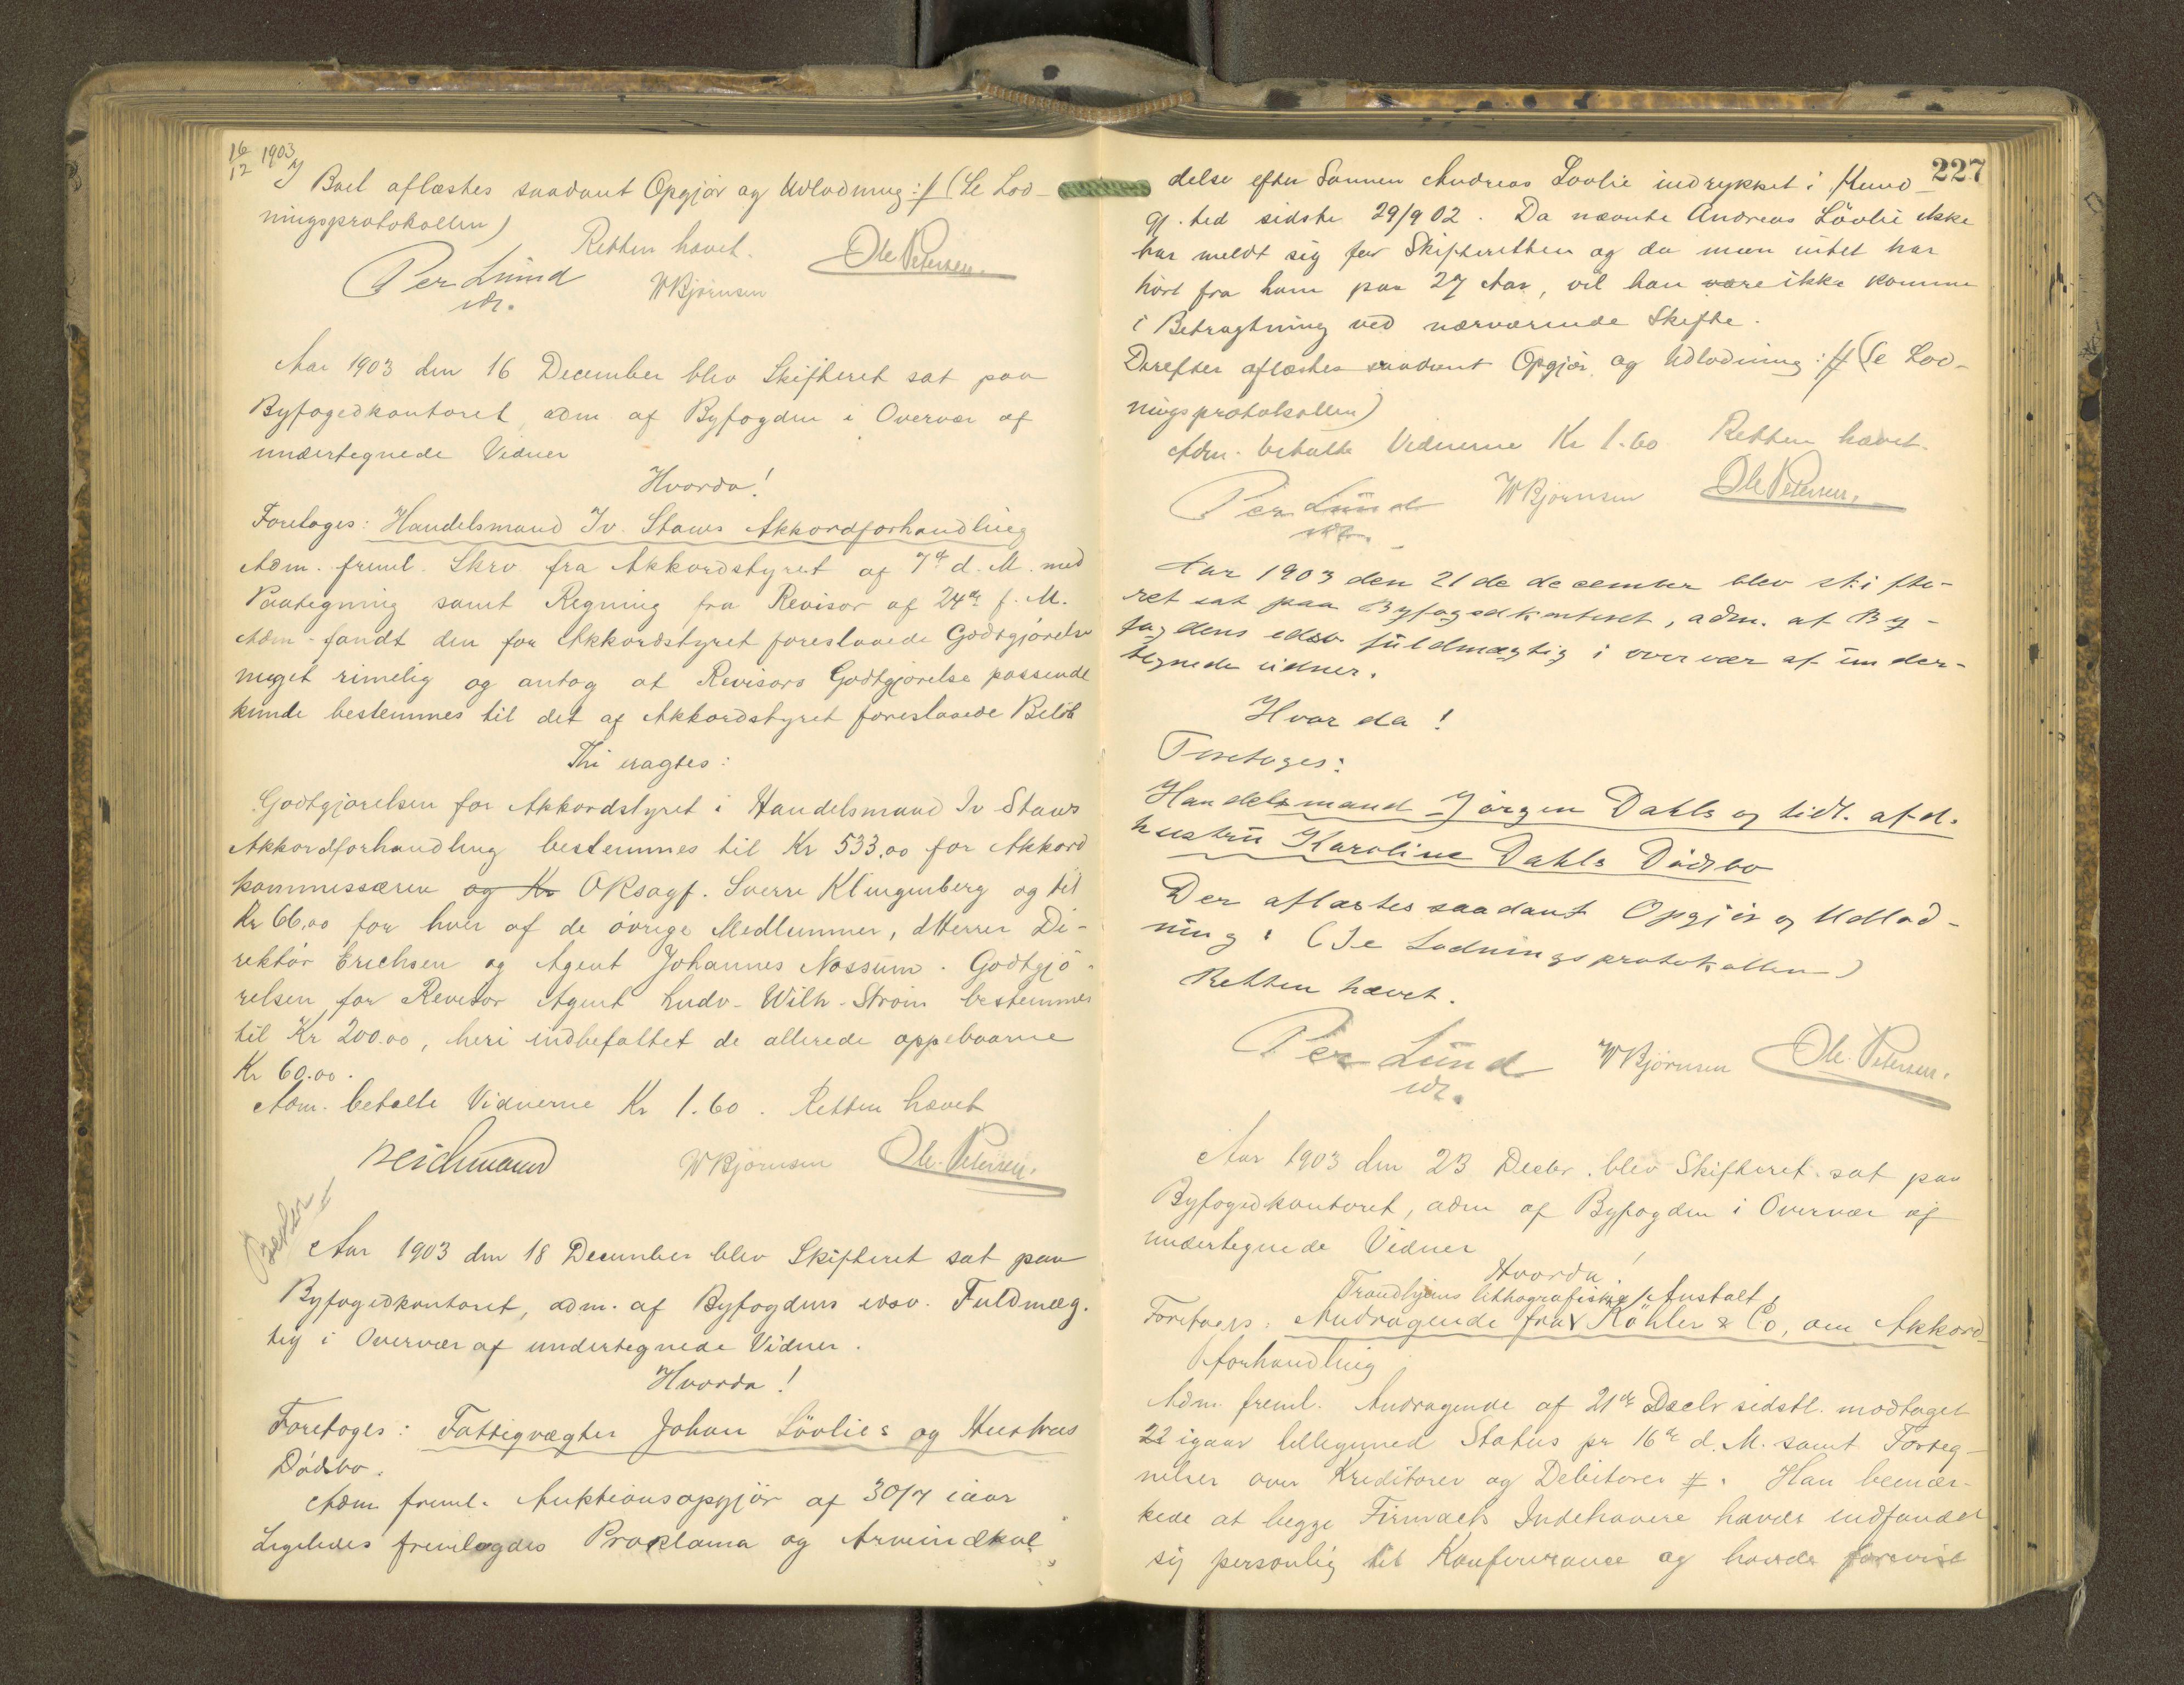 16/12 1903
I Boet aflæstes saadant Opgjør og Udlodning :/: (Se Lod-
ningsprotokollen)
Retten hævet.
Per Lund WBjörnsen Ole Petersen.
edsv.
Aar 1903 den 16 December blev Skifteret sat paa
Byfogedkontoret, adm af Byfogden i Overvær af
undertegnede Vidner
Hvorda!
Foretoges: Handelsmand Iv. Staws Akkordforhandling
Adm. freml. Skrv. fra Akkordstyret af 7de d. M. med
Paategning samt Regning fra Revisor af 24de f. M.
Adm. fandt den for Akkordstyret foreslaaede Godtgjörelse
meget rimelig og antog at Revisors Godtgjörelse passende
kunde bestemmes til det af Akkordstyret foreslaaede Belöb
Thi eragtes:
Godtgjörelsen for Akkordstyret i Handelsmand Iv Staws
Akkordforhandling bestemmes til Kr 533.00 for Akkord
kommissæren og Kr ORsagf. Sverre Klingenberg og til
Kr 66,00 for hver af de övrige Medlemmer, dHerrer Di-
rektör Erichsen og Agent Johannes Nossum. Godtgjö-
relsen for Revisor Agent Ludv. Wilh. Ström bestemmes
til Kr 200.00, heri indbefattet de allerede oppebaarne
Kr 60.00.
Adm. betalte Vidnerne Kr 1.60. Retten hævet
WBjörnsen Ole Petersen.
Aar 1903 den 18 December blev Skifteret sat paa
Byfogedkontoret, adm. af Byfogdens edsv. Fuldmæg-
tig i Overvær af undertegnede Vidner.
Hvorda!
Foretoges: Fattigvægter Johan Lövlies og Hustrus
Dödsbo.
Adm freml. Auktionsopgjör af 30/7 iaar
Ligeledes fremlagdes Proklama og Arveindkal
227
delse efter Sönnen Andreas Lövlie indrykket i Kund-
gj. tid sidste 29/9 02. Da nævnte Andreas Lövlie ikke
har meldt sig for Skifteretten og da man intet har
hört fra ham paa 27 Aar, vil han være ikke komme
i Betragtning ved nærværende Skifte.
Derefter aflæstes saadant Opgjör og Udlodning :/: (Se Lod-
ningsprotokollen)
Adm. betalte Vidnerne Kr 1.60 Retten hævet.
Per Lund WBjörnsen Ole Petersen.
edsv.
Aar 1903 den 21de december blev skifte-
ret sat paa Byfogedkontoret, adm. af By-
fogdens edsv. fuldmægtig i overvær af under-
tegnede vidner.
Hvorda!
Foretoges:
Handelsmand Jörgen Dahls og tidl. afd.
hustru Karoline Dahls Dödsbo
Der aflæstes saadant Opgjör og Udlod-
ning: (Se Lodningsprotokollen)
Retten hævet.
Per Lund WBjörnsen Ole Petersen.
edsv.
Aar 1903 den 23 Decbr. blev Skifteret sat paa
Byfogedkontoret, adm af Byfogden i Overvær af
undertegnede Vidner
Hvorda!
Trondhjems lithografiske Anstalt,
Foretoges: Andragende fra Köhler & Co, om Akkord-
forhandling
Adm. freml. Andragende af 21de Decbr sidstl. modtaget
22 igaar tilligemed Status pr 16de d. M. samt Forteg-
nelser over Kreditorer og Debitorer #. Han bemær-
kede at begge Firmaets Indehavere havde indfundet
sig personlig til Konferance og havde forevist